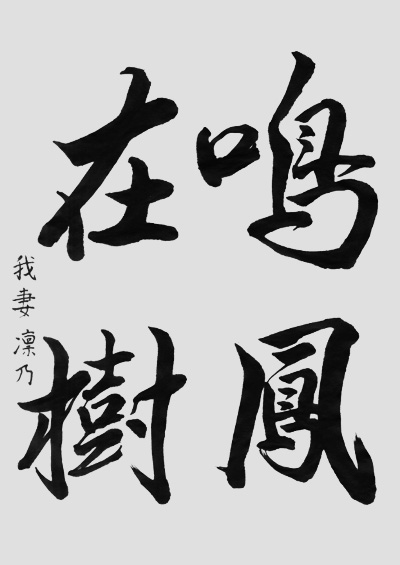 鳴鳳
在樹
我妻凜乃